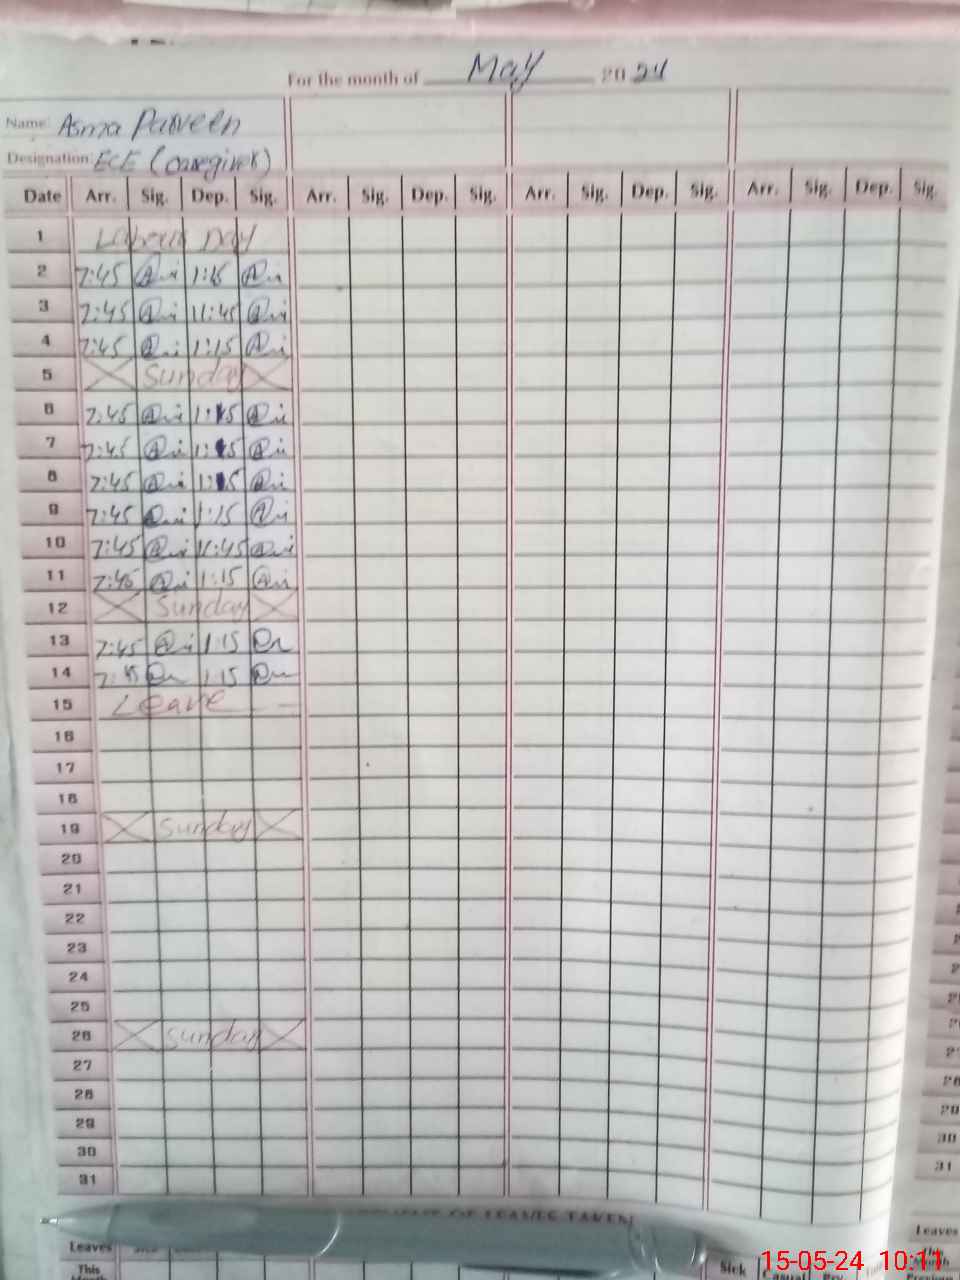 For the month of May 2024
Name: Asma Parveen
Designation: ECE (caregiver)
Date Arr. Sig. Dep. Sig. Arr. Sig. Dep. Sig. Arr. Sig. Dep. Sig. Arr. Sig. Dep. Sig.
1 Labour Day
2 7:45 1:15
3 7:45 11:45
4 7:45 1:15
5 Sunday
6 7:45 1:15
7 7:45 1:15
8 7:45 1:15
9 7:45 1:15
10 7:45 11:45
11 7:45 1:15
12 Sunday
13 7:45 1:15
14 7:45 1:15
15 Leave
16
17
18
19 Sunday
20
21
22
23
24
25
26 Sunday
27
28
29
30
31
OF LEAVES TAKEN
Leaves
This
Month
Sick
Leaves
15-05-24 10:11